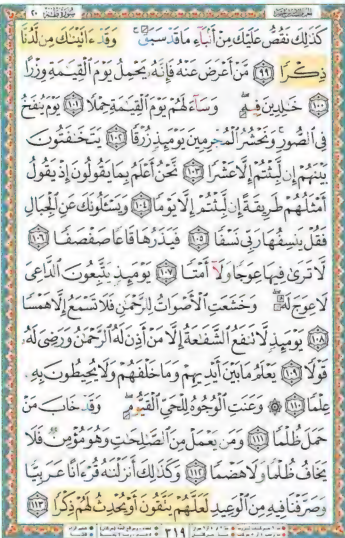 الجزء السادس عشر
سورة طه ٢٠
كَذَٰلِكَ نَقُصُّ عَلَيْكَ مِنْ أَنۢبَآءِ مَا قَدْ سَبَقَ ۚ وَقَدْ ءَاتَيْنَٰكَ مِن لَّدُنَّا
ذِكْرًا ٩٩ مَّنْ أَعْرَضَ عَنْهُ فَإِنَّهُۥ يَحْمِلُ يَوْمَ ٱلْقِيَٰمَةِ وِزْرًا
١٠٠ خَٰلِدِينَ فِيهِ ۖ وَسَآءَ لَهُمْ يَوْمَ ٱلْقِيَٰمَةِ حِمْلًا ١٠١ يَوْمَ يُنفَخُ
فِى ٱلصُّورِ ۚ وَنَحْشُرُ ٱلْمُجْرِمِينَ يَوْمَئِذٍ زُرْقًا ١٠٢ يَتَخَٰفَتُونَ
بَيْنَهُمْ إِن لَّبِثْتُمْ إِلَّا عَشْرًا ١٠٣ نَّحْنُ أَعْلَمُ بِمَا يَقُولُونَ إِذْ يَقُولُ
أَمْثَلُهُمْ طَرِيقَةً إِن لَّبِثْتُمْ إِلَّا يَوْمًا ١٠٤ وَيَسْـَٔلُونَكَ عَنِ ٱلْجِبَالِ
فَقُلْ يَنسِفُهَا رَبِّى نَسْفًا ١٠٥ فَيَذَرُهَا قَاعًا صَفْصَفًا ١٠٦
لَّا تَرَىٰ فِيهَا عِوَجًا وَلَآ أَمْتًا ١٠٧ يَوْمَئِذٍ يَتَّبِعُونَ ٱلدَّاعِىَ
لَا عِوَجَ لَهُۥ ۖ وَخَشَعَتِ ٱلْأَصْوَاتُ لِلرَّحْمَٰنِ فَلَا تَسْمَعُ إِلَّا هَمْسًا
١٠٨ يَوْمَئِذٍ لَّا تَنفَعُ ٱلشَّفَٰعَةُ إِلَّا مَنْ أَذِنَ لَهُ ٱلرَّحْمَٰنُ وَرَضِىَ لَهُۥ
قَوْلًا ١٠٩ يَعْلَمُ مَا بَيْنَ أَيْدِيهِمْ وَمَا خَلْفَهُمْ وَلَا يُحِيطُونَ بِهِۦ
عِلْمًا ١١٠ ۞ وَعَنَتِ ٱلْوُجُوهُ لِلْحَىِّ ٱلْقَيُّومِ ۖ وَقَدْ خَابَ مَنْ
حَمَلَ ظُلْمًا ١١١ وَمَن يَعْمَلْ مِنَ ٱلصَّٰلِحَٰتِ وَهُوَ مُؤْمِنٌ فَلَا
يَخَافُ ظُلْمًا وَلَا هَضْمًا ١١٢ وَكَذَٰلِكَ أَنزَلْنَٰهُ قُرْءَانًا عَرَبِيًّا
وَصَرَّفْنَا فِيهِ مِنَ ٱلْوَعِيدِ لَعَلَّهُمْ يَتَّقُونَ أَوْ يُحْدِثُ لَهُمْ ذِكْرًا ١١٣
٣١٩